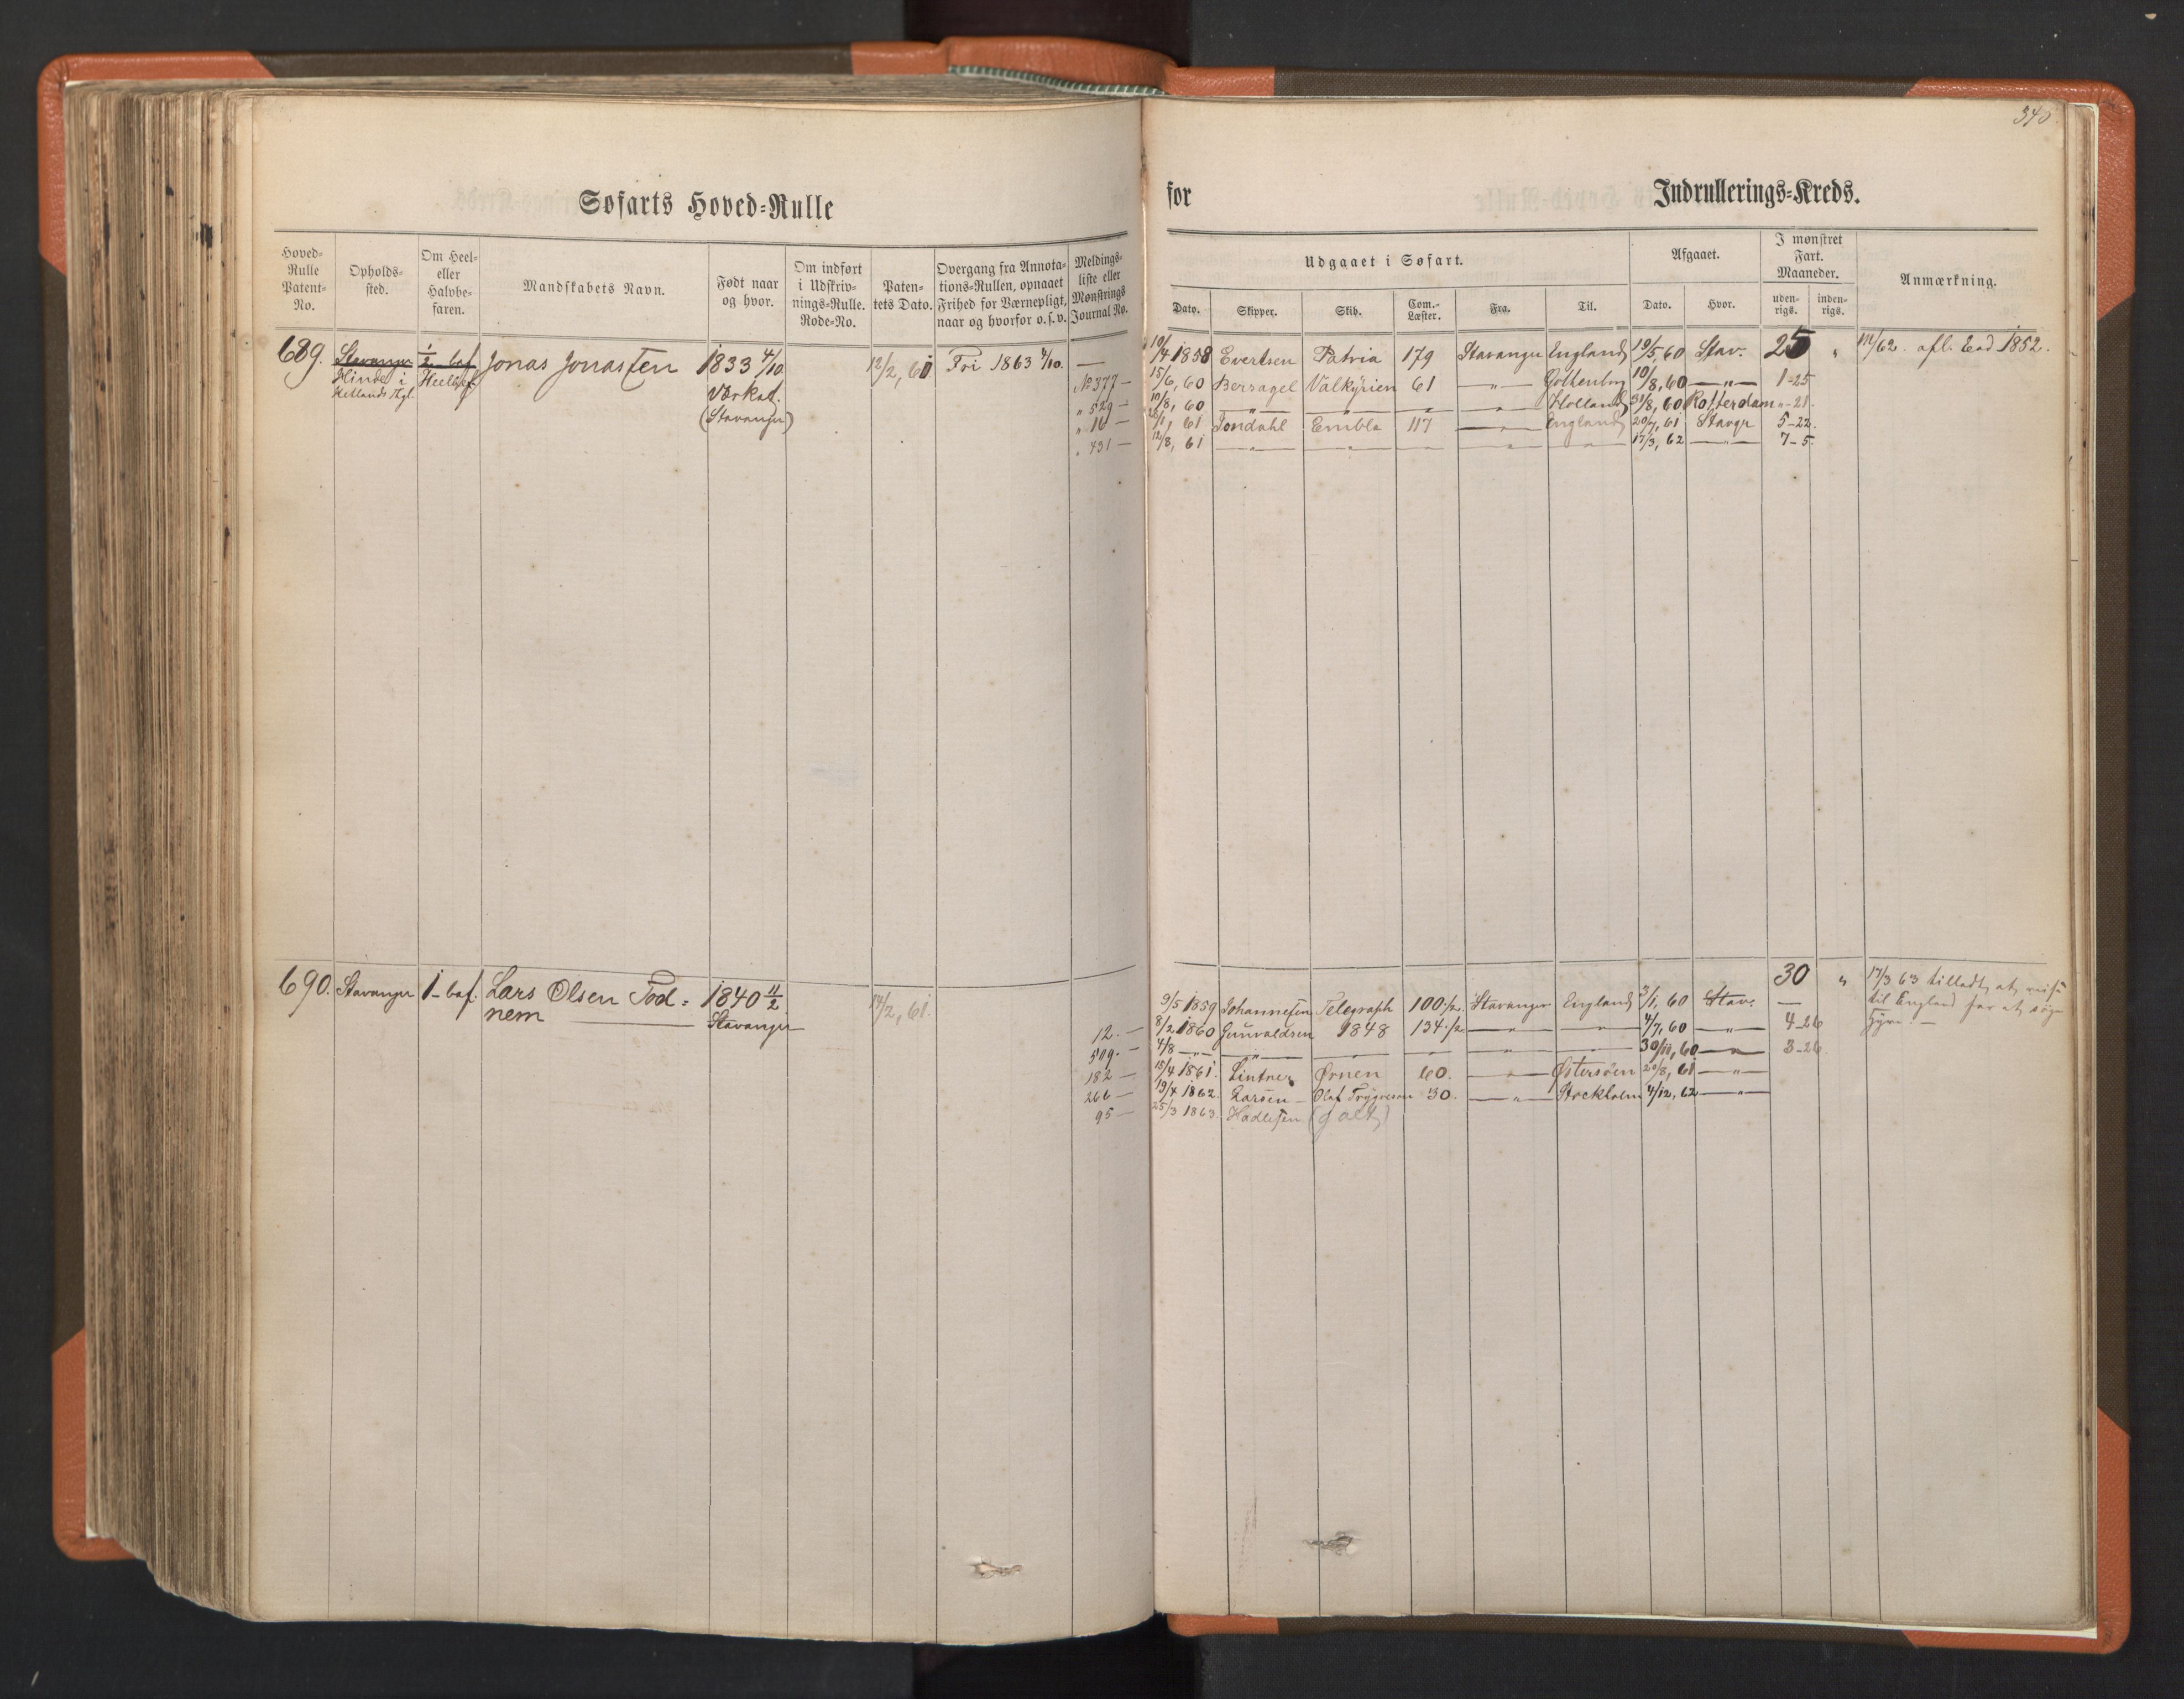 340.
Søfarts Hoved-Rulle
for Indrullerings-Kreds.
Hoved-Rulle Patent-No. Opholds-sted. Om Heel- eller Halvbe-faren. Mandskabets Navn. Født naar og hvor. Om indført i Udskriv-nings-Rulle. Rode-No. Paten-tets Dato. Overgang fra Annota-tions-Rullen, opnaaet Frihed for Værnepligt, naar og hvorfor o. s. v. Meldings-liste eller Mønstrings Journal No.
Udgaaet i Søfart. Afgaaet. I mønstret Fart. Maaneder. Anmærkning.
Dato. Skipper. Skib. Com.-Læster. Fra. Til. Dato. Hvor. uden-rigs. inden-rigs.
689. Stavanger 1/2 bef. Jonas Jonassen 1833 4/10 12/2, 61 Fri 1863 4/10. —
Hinde i Heelbef
Hetlands Tgl. Værket.
(Stavanger)
10/4 1858 Evertsen Patria 179 Stavanger England 19/5, 60 Stav. 25 „ /62. afl. Eed 1852.
No 377 — 15/6, 60 Bersagel Valkyrien 61 —„— Gothenborg 10/8, 60 —„— 1-25
„ 529 — 10/8, 60 —„— —„— — —„— Holland 31/8, 60 Rotterdam „-21.
„ 16 — 28/1, 61 Jondahl Embla 117 —„— England 20/7, 61 Stavgr 5-22.
„ 431 — 12/8, 61 —„— —„— —„— —„— —„— 17/3, 62 —„— 7-5.
690. Stavanger 1-bef. Lars Olsen Tod- 1840 11/2 14/2, 61.
nem Stavanger
30 „ 17/3 63 tilladt at reise
9/5 1859 Johannesen Telegraph 100 1/2 Stavanger England 3/1, 60 Stav. — til England for at søge
12. — 8/2 1860 Gunvaldsen 1848 134 1/2 —„— —„— 4/7, 60 —„— 4-26 Hyre. —
509. — 4/8 —„— —„— —„— — —„— —„— 30/11, 60 —„— 3-26.
182 — 15/4 1861. Lintner Ørnen 60. —„— Østersøen 20/8, 61 —„—
266 — 19/4 1862. Larsen — Olaf Trygvesøn 30. —„— Stockholm 4/12, 62 —„—
95 — 25/3 1863. Hadlesen (galt)